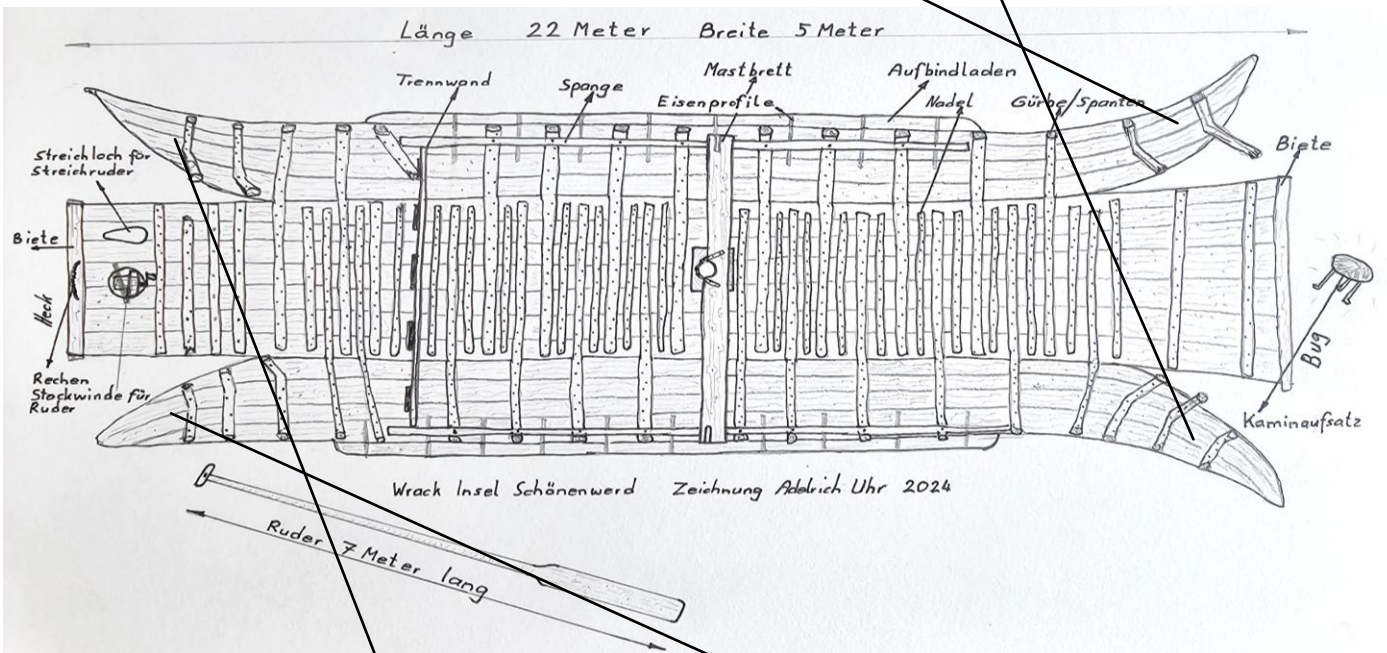 Länge 22 Meter Breite 5 Meter
Trennwand
Spange
Mastbrett
Eisenprofile
Aufbindladen
Nadel
Gürbe/Spanten
Biete
Streichloch für
Streichruder
Biete
Heck
Rechen
Stockwinde für
Ruder
Bug
Kaminaufsatz
Wrack Insel Schönenwerd Zeichnung Adelrich Uhr 2024
Ruder 7 Meter lang